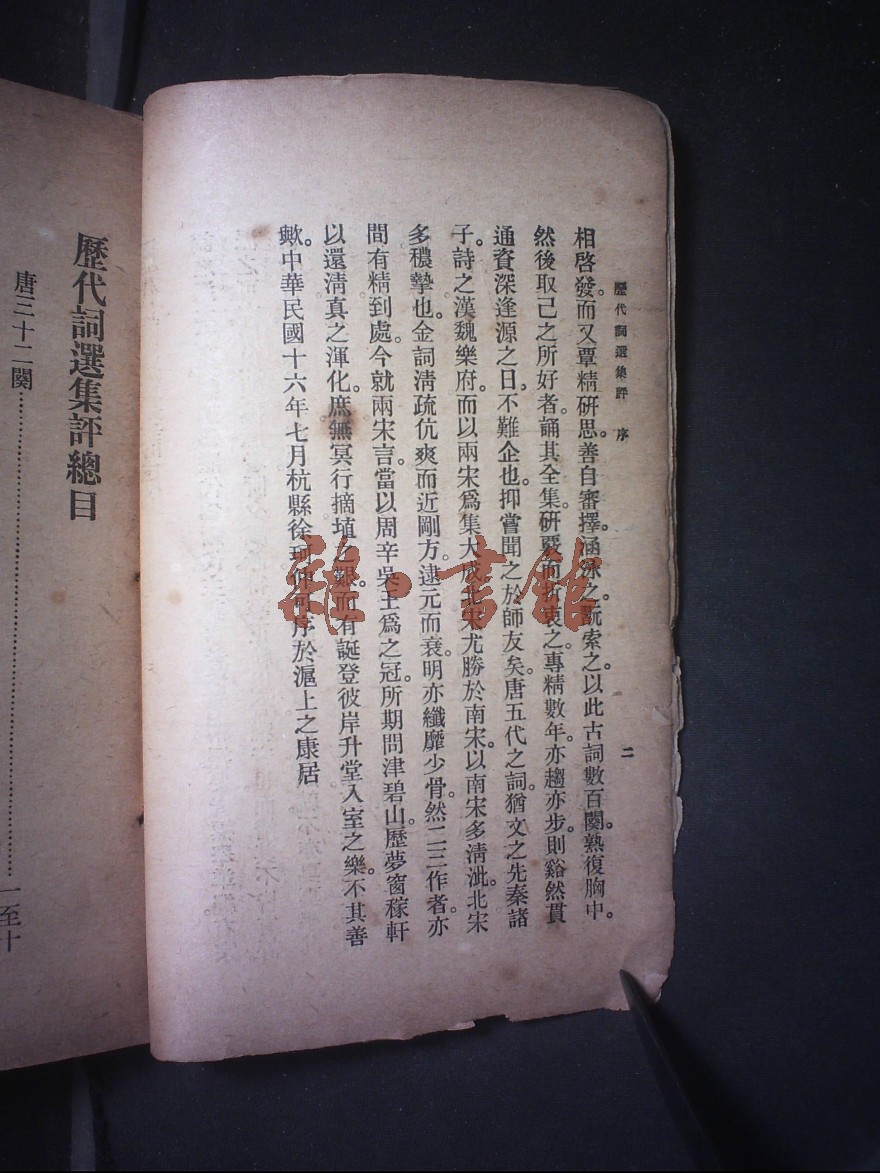 歷代詞選集評 序
二
相啓發。而又覃精研思。善自審擇。涵泳之。翫索之。以此古詞數百闋。熟復胸中。
然後取己之所好者。誦其全集。研覈而折衷之。專精數年。亦趨亦步。則谿然貫
通。資深逢源之日。不難企也。抑嘗聞之於師友矣。唐五代之詞。猶文之先秦諸
子。詩之漢魏樂府。而以兩宋爲集大成。北宋尤勝於南宋。以南宋多清泚。北宋
多穠摯也。金詞清疏伉爽而近剛方。逮元而衰。明亦纖靡少骨。然二三作者。亦
間有精到處。今就兩宋言。當以周辛吳王爲之冠。所期問津碧山。歷夢窗稼軒
以還清真之渾化。庶無冥行摘埴之艱。而有誕登彼岸升堂入室之樂。不其善
歟。中華民國十六年七月杭縣徐珂仲可序於滬上之康居
歷代詞選集評總目
唐三十二闋……………………一至十
雜·書館